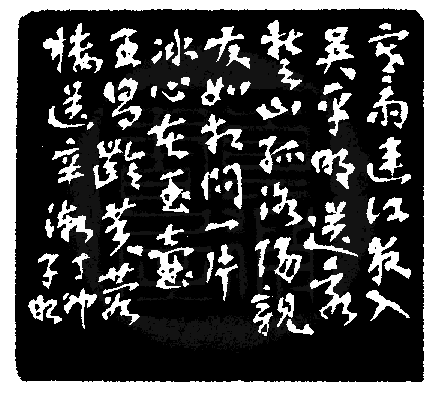 寒雨連江夜入
吳平明送客
楚山孤洛陽親
友如相問一片
冰心在玉壺
王昌齡芙蓉
樓送辛漸
丁卯
子明